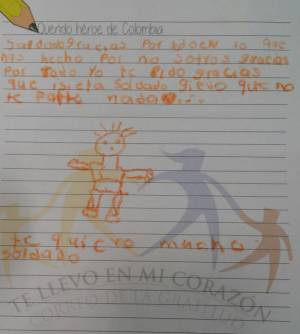 Querido héroe de Colombia
Soldado gracias Por todo lo que
has hecho Por no sotros gracas
Por todo Yo te Pido gracias
que
soldado que no
te Falte nada
te quiero mucho
soldado
TE LLEVO EN MI CORAZÓN
CORREO DE LA GRATITUD